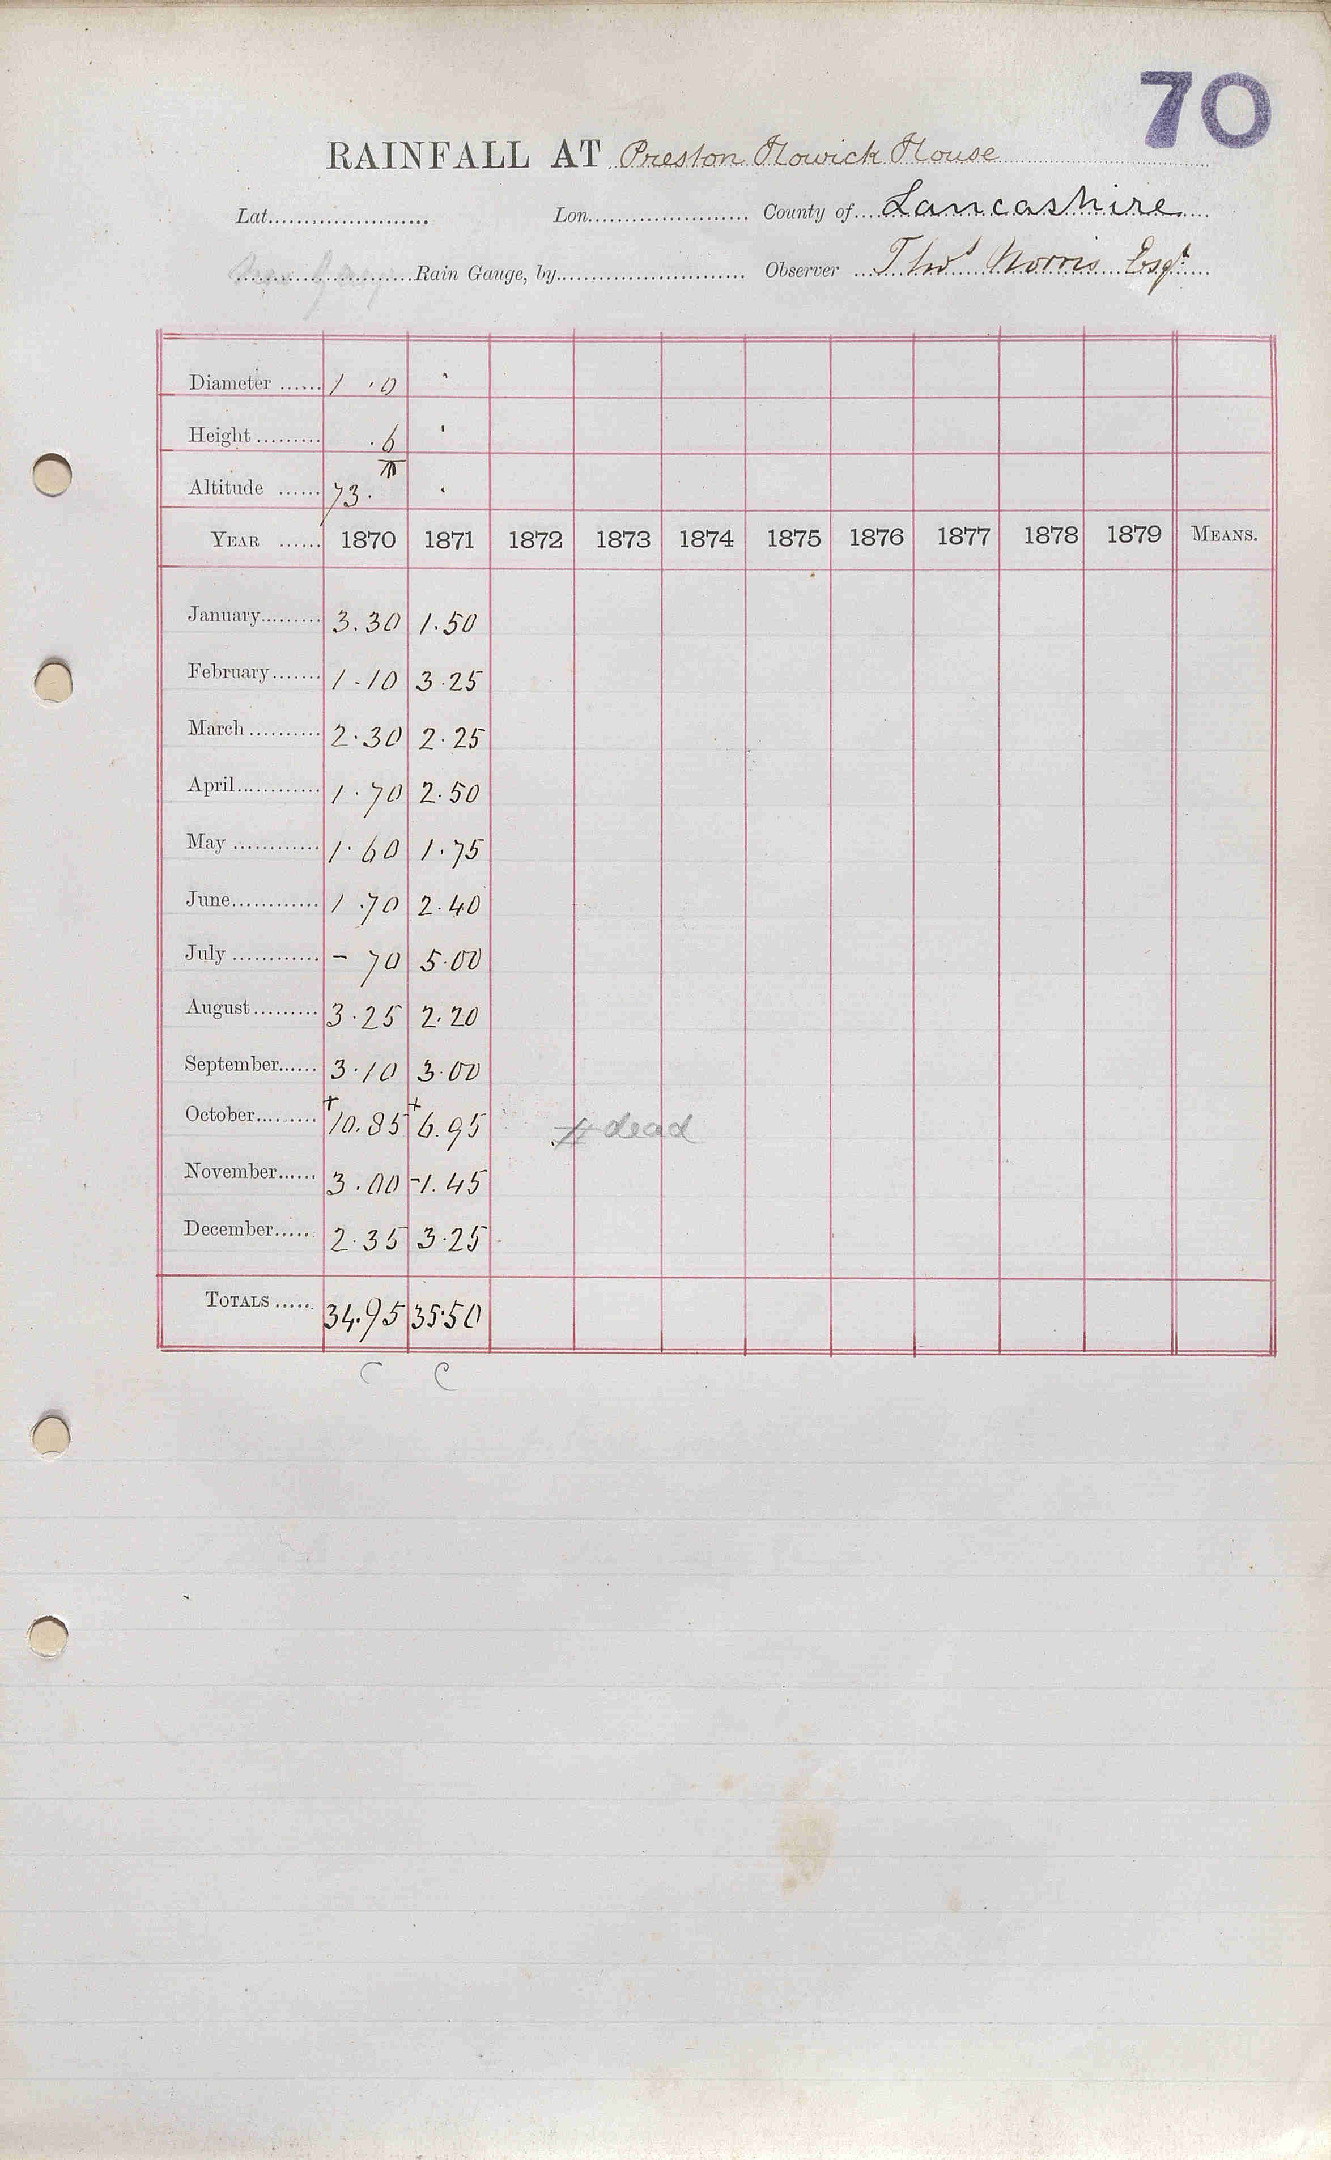 70
RAINFALL AT Preston Howick House
Lat. Lon. County of Lancashire
Rain Gauge, by Observer Thos Norris Esqr
Diameter 1 .0 .
Height .6 .
Altitude 73. .
YEAR 1870 1871 1872 1873 1874 1875 1876 1877 1878 1879 MEANS.
January 3.30 1.50
February 1.10 3.25
March 2.30 2.25
April 1.70 2.50
May 1.60 1.75
June 1.70 2.40
July - 70 5.00
August 3.25 2.20
September 3.10 3.00
October +10.85 +6.95 dead
November 3.00 -1.45
December 2.35 3.25
TOTALS 34.95 35.50
C C